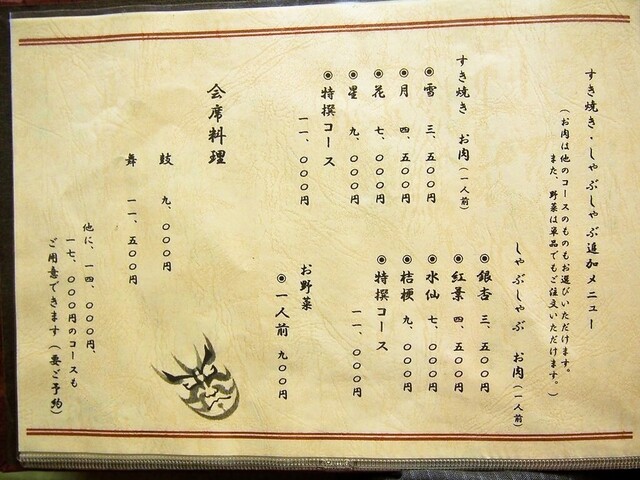 すき焼き・しゃぶしゃぶ追加メニュー
（お肉は他のコースのものもお選びいただけます。
また、野菜は単品でもご注文いただけます。）
すき焼き お肉（一人前）
◉雪 三、五〇〇円
◉月 四、五〇〇円
◉花 七、〇〇〇円
◉星 九、〇〇〇円
◉特撰コース
一一、〇〇〇円
しゃぶしゃぶ お肉（一人前）
◉銀杏 三、五〇〇円
◉紅葉 四、五〇〇円
◉水仙 七、〇〇〇円
◉桔梗 九、〇〇〇円
◉特撰コース
一一、〇〇〇円
お野菜
◉一人前 九〇〇円
会席料理
鼓 九、〇〇〇円
舞 一一、五〇〇円
他に、一四、〇〇〇円、
一七、〇〇〇円のコースも
ご用意できます（要ご予約）